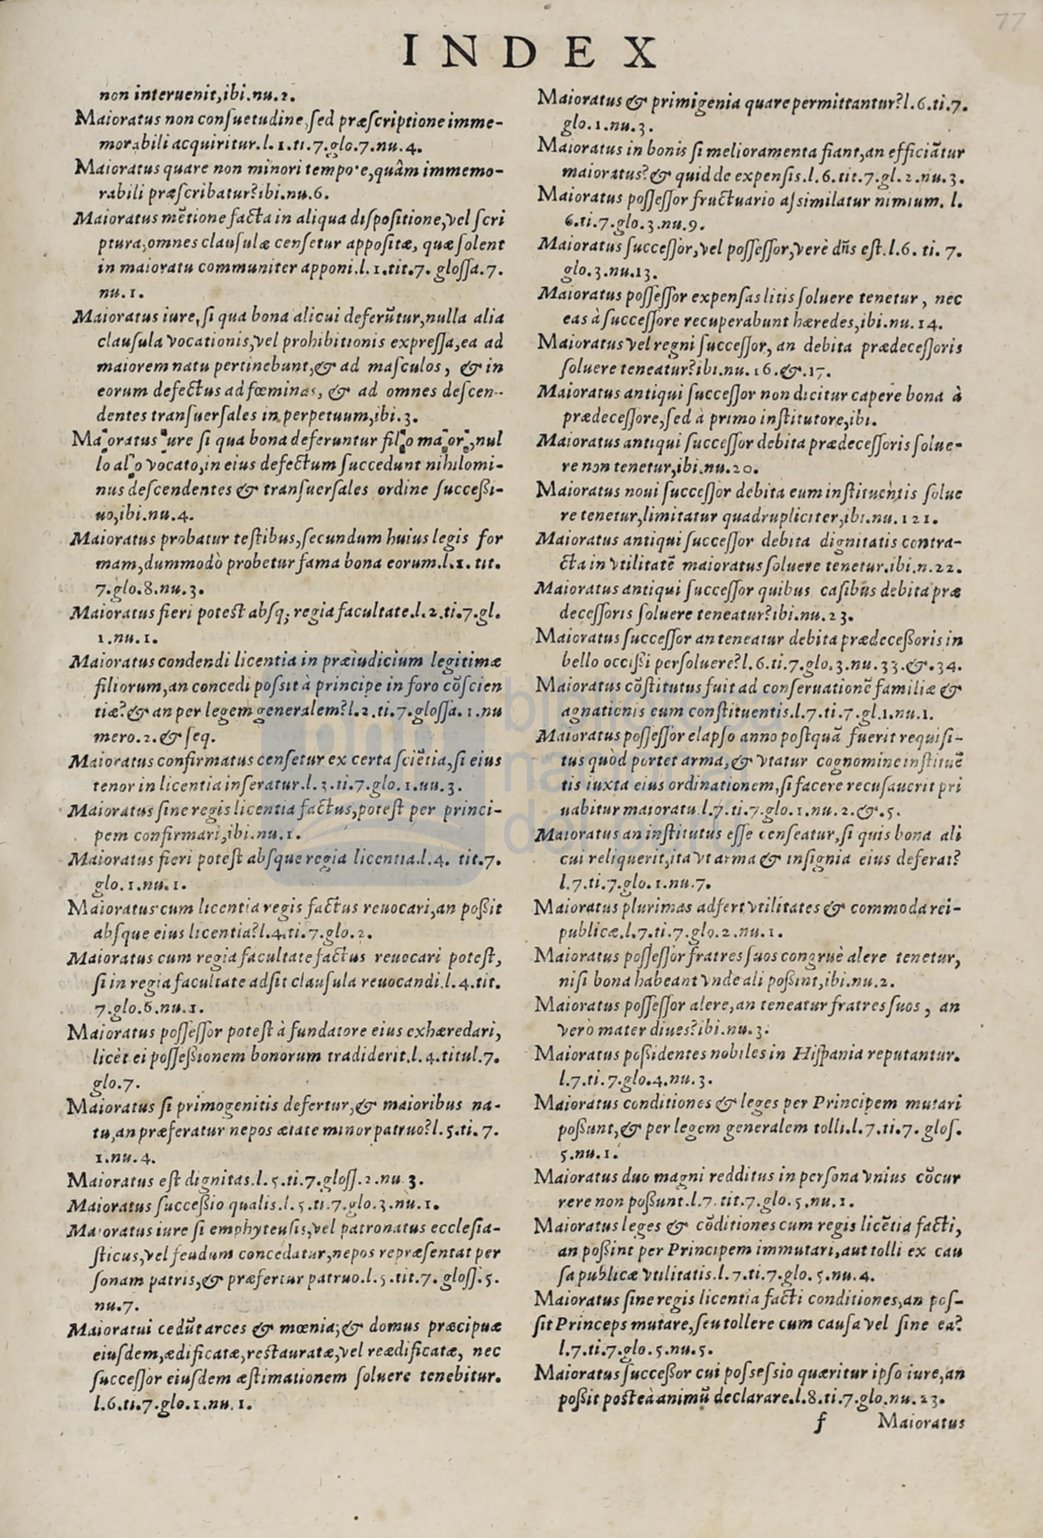 77
INDEX
non interuenit,ibi.nu.2.
Maioratus non consuetudine,sed præscriptione imme-
morabili acquiritur.l.1.ti.7.glo.7.nu.4.
Maioratus quare non minori tempore,quàm immemo-
rabili præscribatur?ibi.nu.6.
Maioratus mẽtione facta in aliqua dispositione,vel scri
ptura,omnes clausulæ censetur appositæ, quæ solent
in maioratu communiter apponi.l.1.tit.7. glossa.7.
nu.1.
Maioratus iure,si qua bona alicui deferũtur,nulla alia
clausula vocationis,vel prohibitionis expressa,ea ad
maiorem natu pertinebunt,& ad masculos, & in
eorum defectus ad fœminas, & ad omnes descen-
dentes transuersales in perpetuum,ibi.3.
Maioratus iure si qua bona deferuntur filio maiori,nul
lo alio vocato,in eius defectum succedunt nihilomi-
nus descendentes & transuersales ordine successi-
uo,ibi.nu.4.
Maioratus probatur testibus,secundum huius legis for
mam,dummodò probetur fama bona eorum.l.1. tit.
7.glo.8.nu.3.
Maioratus fieri potest absq; regia facultate.l.2.ti.7.gl.
1.nu.1.
Maioratus condendi licentia in præiudicium legitimæ
filiorum,an concedi possit à principe in foro cõscien
tiæ?& an per legem generalem?l.2.ti.7.glossa.1.nu
mero.2.& seq.
Maioratus confirmatus censetur ex certa sciẽtia,si eius
tenor in licentia inseratur.l.3.ti.7.glo.1.nu.3.
Maioratus sine regis licentia factus,potest per princi-
pem confirmari,ibi.nu.1.
Maioratus fieri potest absque regia licentia.l.4. tit.7.
glo.1.nu.1.
Maioratus cum licentia regis factus reuocari,an possit
absque eius licentia?l.4.ti.7.glo.2.
Maioratus cum regia facultate factus reuocari potest,
si in regia facultate adsit clausula reuocandi.l.4.tit.
7.glo.6.nu.1.
Maioratus possessor potest à fundatore eius exhæredari,
licèt ei possessionem bonorum tradiderit.l.4.titul.7.
glo.7.
Maioratus si primogenitis defertur,& maioribus na-
tu,an præferatur nepos ætate minor patruo?l.5.ti.7.
1.nu.4.
Maioratus est dignitas.l.5.ti.7.gloss.2.nu.3.
Maioratus successio qualis.l.5.ti.7.glo.3.nu.1.
Maioratus iure si emphyteusis,vel patronatus ecclesia-
sticus,vel feudum concedatur,nepos repræsentat per
sonam patris,& præfertur patruo.l.5.tit.7. gloss.5.
nu.7.
Maioratui cedũt arces & mœnia;& domus præcipuæ
eiusdem,ædificatæ,restauratæ,vel reædificatæ, nec
successor eiusdem æstimationem soluere tenebitur.
l.6.ti.7.glo.1.nu.1.
Maioratus & primigenia quare permittantur?l.6.ti.7.
glo.1.nu.3.
Maioratus in bonis si melioramenta fiant,an efficiãtur
maioratus?& quid de expensis.l.6.tit.7.gl.2.nu.3.
Maioratus possessor fructuario assimilatur nimium. l.
6.ti.7.glo.3.nu.9.
Maioratus successor,vel possessor,verè dñs est.l.6. ti. 7.
glo.3.nu.13.
Maioratus possessor expensas litis soluere tenetur, nec
eas à successore recuperabunt hæredes,ibi.nu.14.
Maioratus vel regni successor, an debita prædecessoris
soluere teneatur?ibi.nu.16.&.17.
Maioratus antiqui successor non dicitur capere bona à
prædecessore,sed à primo institutore,ibi.
Maioratus antiqui successor debita prædecessoris solue-
re non tenetur,ibi.nu.20.
Maioratus noui successor debita eum instituentis solue
re tenetur,limitatur quadrupliciter,ibi.nu.121.
Maioratus antiqui successor debita dignitatis contra-
cta in vtilitatẽ maioratus soluere tenetur.ibi.n.22.
Maioratus antiqui successor quibus casibus debita præ
decessoris soluere teneatur?ibi.nu.23.
Maioratus successor an teneatur debita prædecessoris in
bello occisi persoluere?l.6.ti.7.glo.3.nu.33.&.34.
Maioratus cõstitutus fuit ad conseruationẽ familiæ &
agnationis eum constituentis.l.7.ti.7.gl.1.nu.1.
Maioratus possessor elapso anno postquã fuerit requisi-
tus quòd portet arma,& vtatur cognomine instituẽ
tis iuxta eius ordinationem,si facere recusauerit pri
uabitur maioratu.l.7.ti.7.glo.1.nu.2.&.5.
Maioratus an institutus esse censeatur,si quis bona ali
cui reliquerit,ita vt arma & insignia eius deferat?
l.7.ti.7.glo.1.nu.7.
Maioratus plurimas adfert vtilitates & commoda rei-
publicæ.l.7.ti.7.glo.2.nu.1.
Maioratus possessor fratres suos congruè alere tenetur,
nisi bona habeant vnde ali possint,ibi.nu.2.
Maioratus possessor alere,an teneatur fratres suos, an
verò mater diues?ibi.nu.3.
Maioratus possidentes nobiles in Hispania reputantur.
l.7.ti.7.glo.4.nu.3.
Maioratus conditiones & leges per Principem mutari
possunt,& per legem generalem tolli.l.7.ti.7. glos.
5.nu.1.
Maioratus duo magni redditus in persona vnius cõcur
rere non possunt.l.7.tit.7.glo.5.nu.1.
Maioratus leges & cõditiones cum regis licẽtia facti,
an possint per Principem immutari,aut tolli ex cau
sa publicæ vtilitatis.l.7.ti.7.glo.5.nu.4.
Maioratus sine regis licentia facti conditiones,an pos-
sit Princeps mutare,seu tollere cum causa vel sine ea?
l.7.ti.7.glo.5.nu.5.
Maioratus successor cui possessio quæritur ipso iure,an
possit posteà animũ declarare.l.8.ti.7.glo.nu.23.
f Maioratus